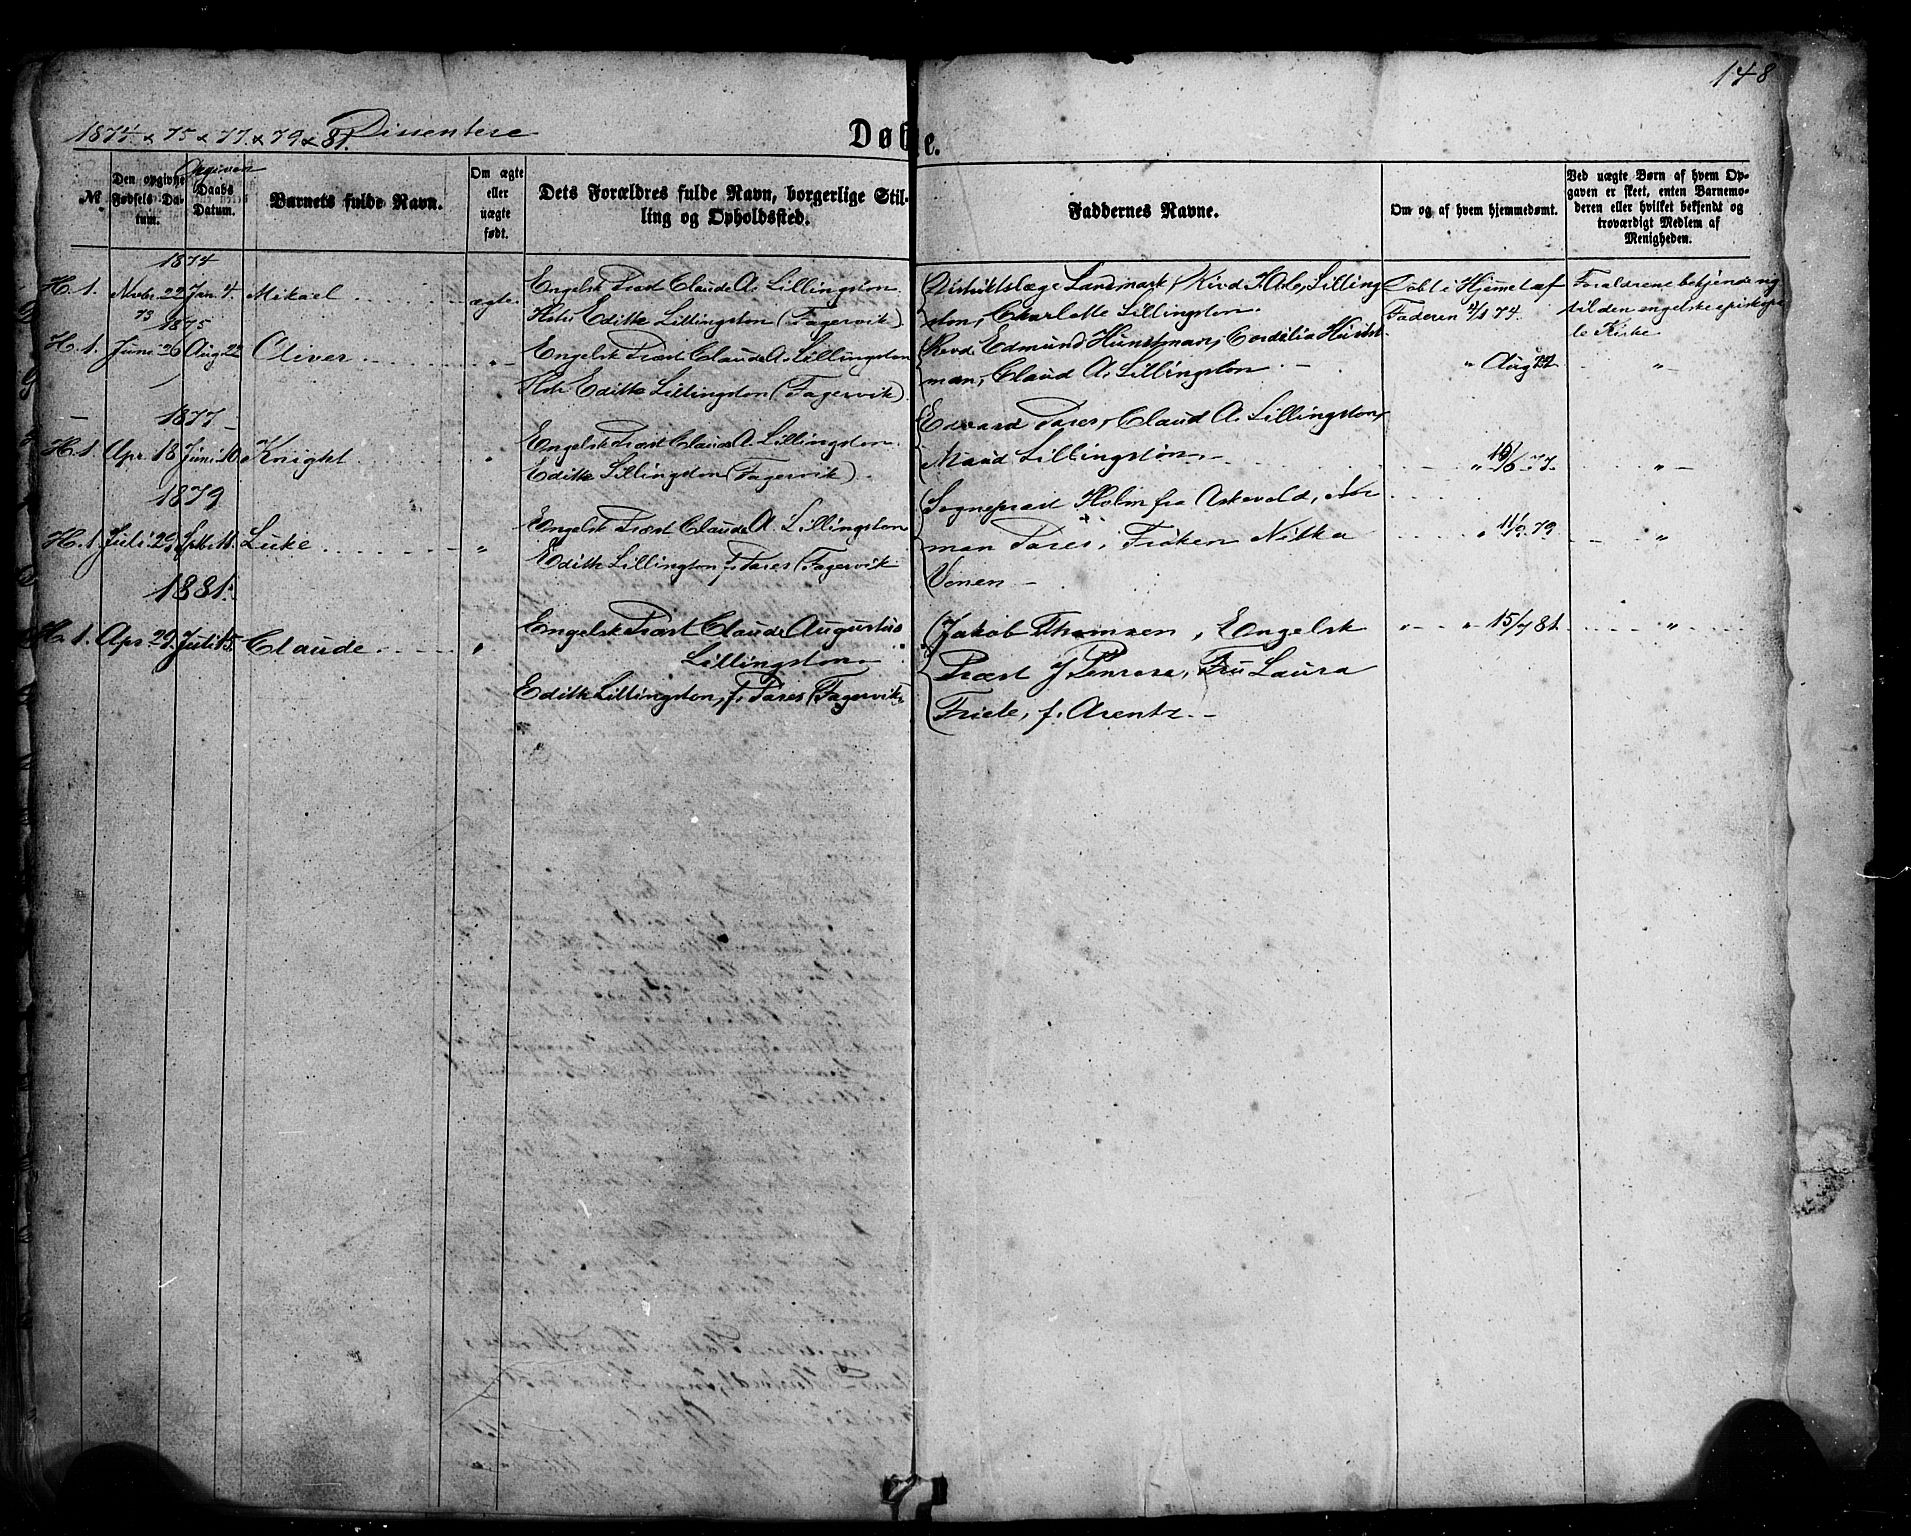 148
1874 & 75 & 77 & 79 & 81. Dissentere
Døbte.
№
Den opgivne Fødsels Datum.
Opgiven
Daabs Datum.
Barnets fulde Navn.
Om ægte eller uægte født.
Dets Forældres fulde Navn, borgerlige Stilling og Opholdssted.
Faddernes Navne.
Om og af hvem hjemmedømt.
Ved uægte Børn af hvem Opgaven er skeet, enten Barnemoderen eller hvilket bekjendt og troværdigt Medlem af Menigheden.
1874
H. 1. Novbr. 22 73 Jan. 4. Mikael ægte. Engelsk Præst Claude A. Lillingston
Hstr. Edith Lillingston (Fagervik)
Distriktslæge Landmark, Lilling-
ston, Charlotte Lillingston.
Døbt i Hjemmet af
Faderen 4/1 74.
Forældrene bekjende sig
til den engelske episkopa-
le Kirke
1875
H. 1. Juni 26 Aug. 22 Oliver " Engelsk Præst Claude A. Lillingston
Hstr. Edith Lillingston (Fagervik)
Revd. Edmund Huntsman, Cordelia Hunts-
man, Claud A. Lillingston. -
" Aug 22 "
1877 -
H. 1. Apr. 18 Juni 10 Knight " Engelsk Præst Claude A. Lillingston.
Edith Lillingston (Fagervik).
Edvard Pares, Claud A. Lillingston,
Maud Lillingston. -
" 10/6 77. "
1879
H. 1. Juli 20 Septbr. 11. Luke " Engelsk Præst Claude A. Lillingston
Edith Lillingston f. Pares (Fagervik
Sogneprest Holm fra Askevold, Nor-
man Pares, Frøken Nitka
Vonen -
" 11/9 79 "
1881.
H. 1. Apr. 29. Juli 15. Claude " Engelsk Præst Claude Augustus
Lillingston
Edith Lillingston, f. Pares (Fagervik)
Jakob Thomsen, Engelsk
Præst J Penrose, Fru Laura
Friele, f. Arentz. -
" " 15/7 81. "